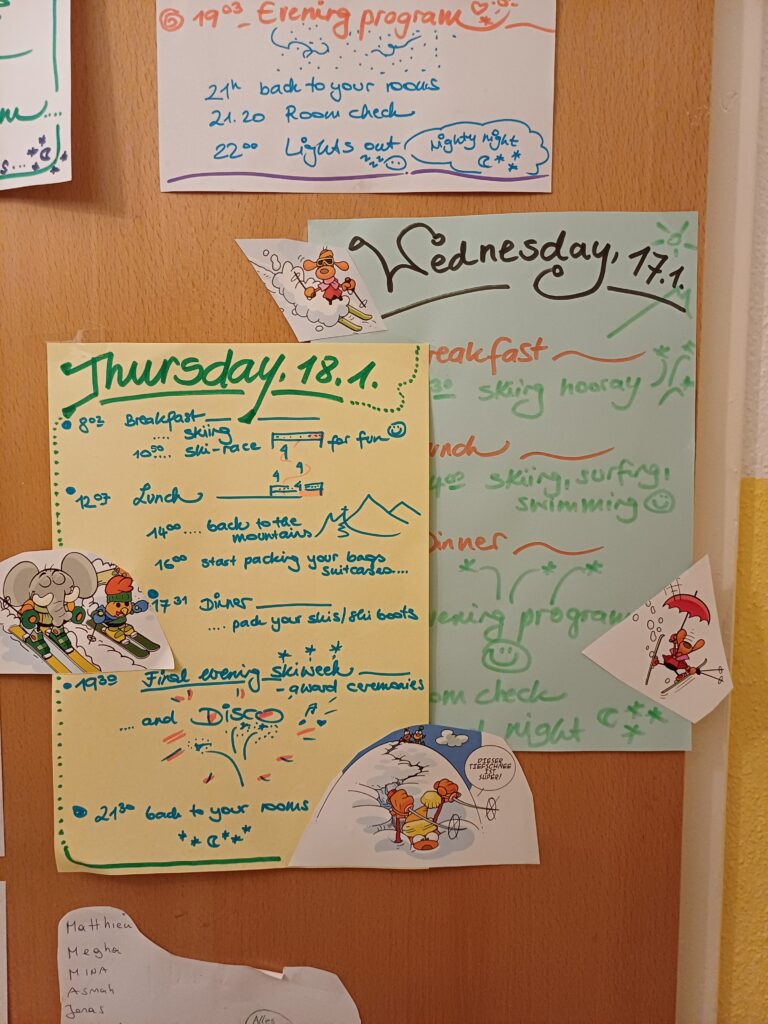 19⁰³ Evening program
21ʰ back to your rooms
21.20 Room check
22⁰⁰ Lights out
Nighty night
Wednesday, 17.1.
reakfast
³⁰ skiing hooray
unch
4⁰⁰ skiing, surfing,
swimming
Dinner
evening program
om check
night
Thursday, 18.1.
8⁰³ Breakfast
.... skiing
ski-race for fun
12⁰⁷ Lunch
14⁰⁰ .... back to the
mountains
16⁰⁰ start packing your bags
suitcases...
17³¹ Dinner
.... pack your skis/ski boots
19³⁰ Final evening skiweek
- award ceremonies
.... and DISCO
21³⁰ back to your rooms
DIESER
TIEFSCHNEE
IST
SUPER!
Matthieu
Megha
MINA
Asmah
Jonas
Alles